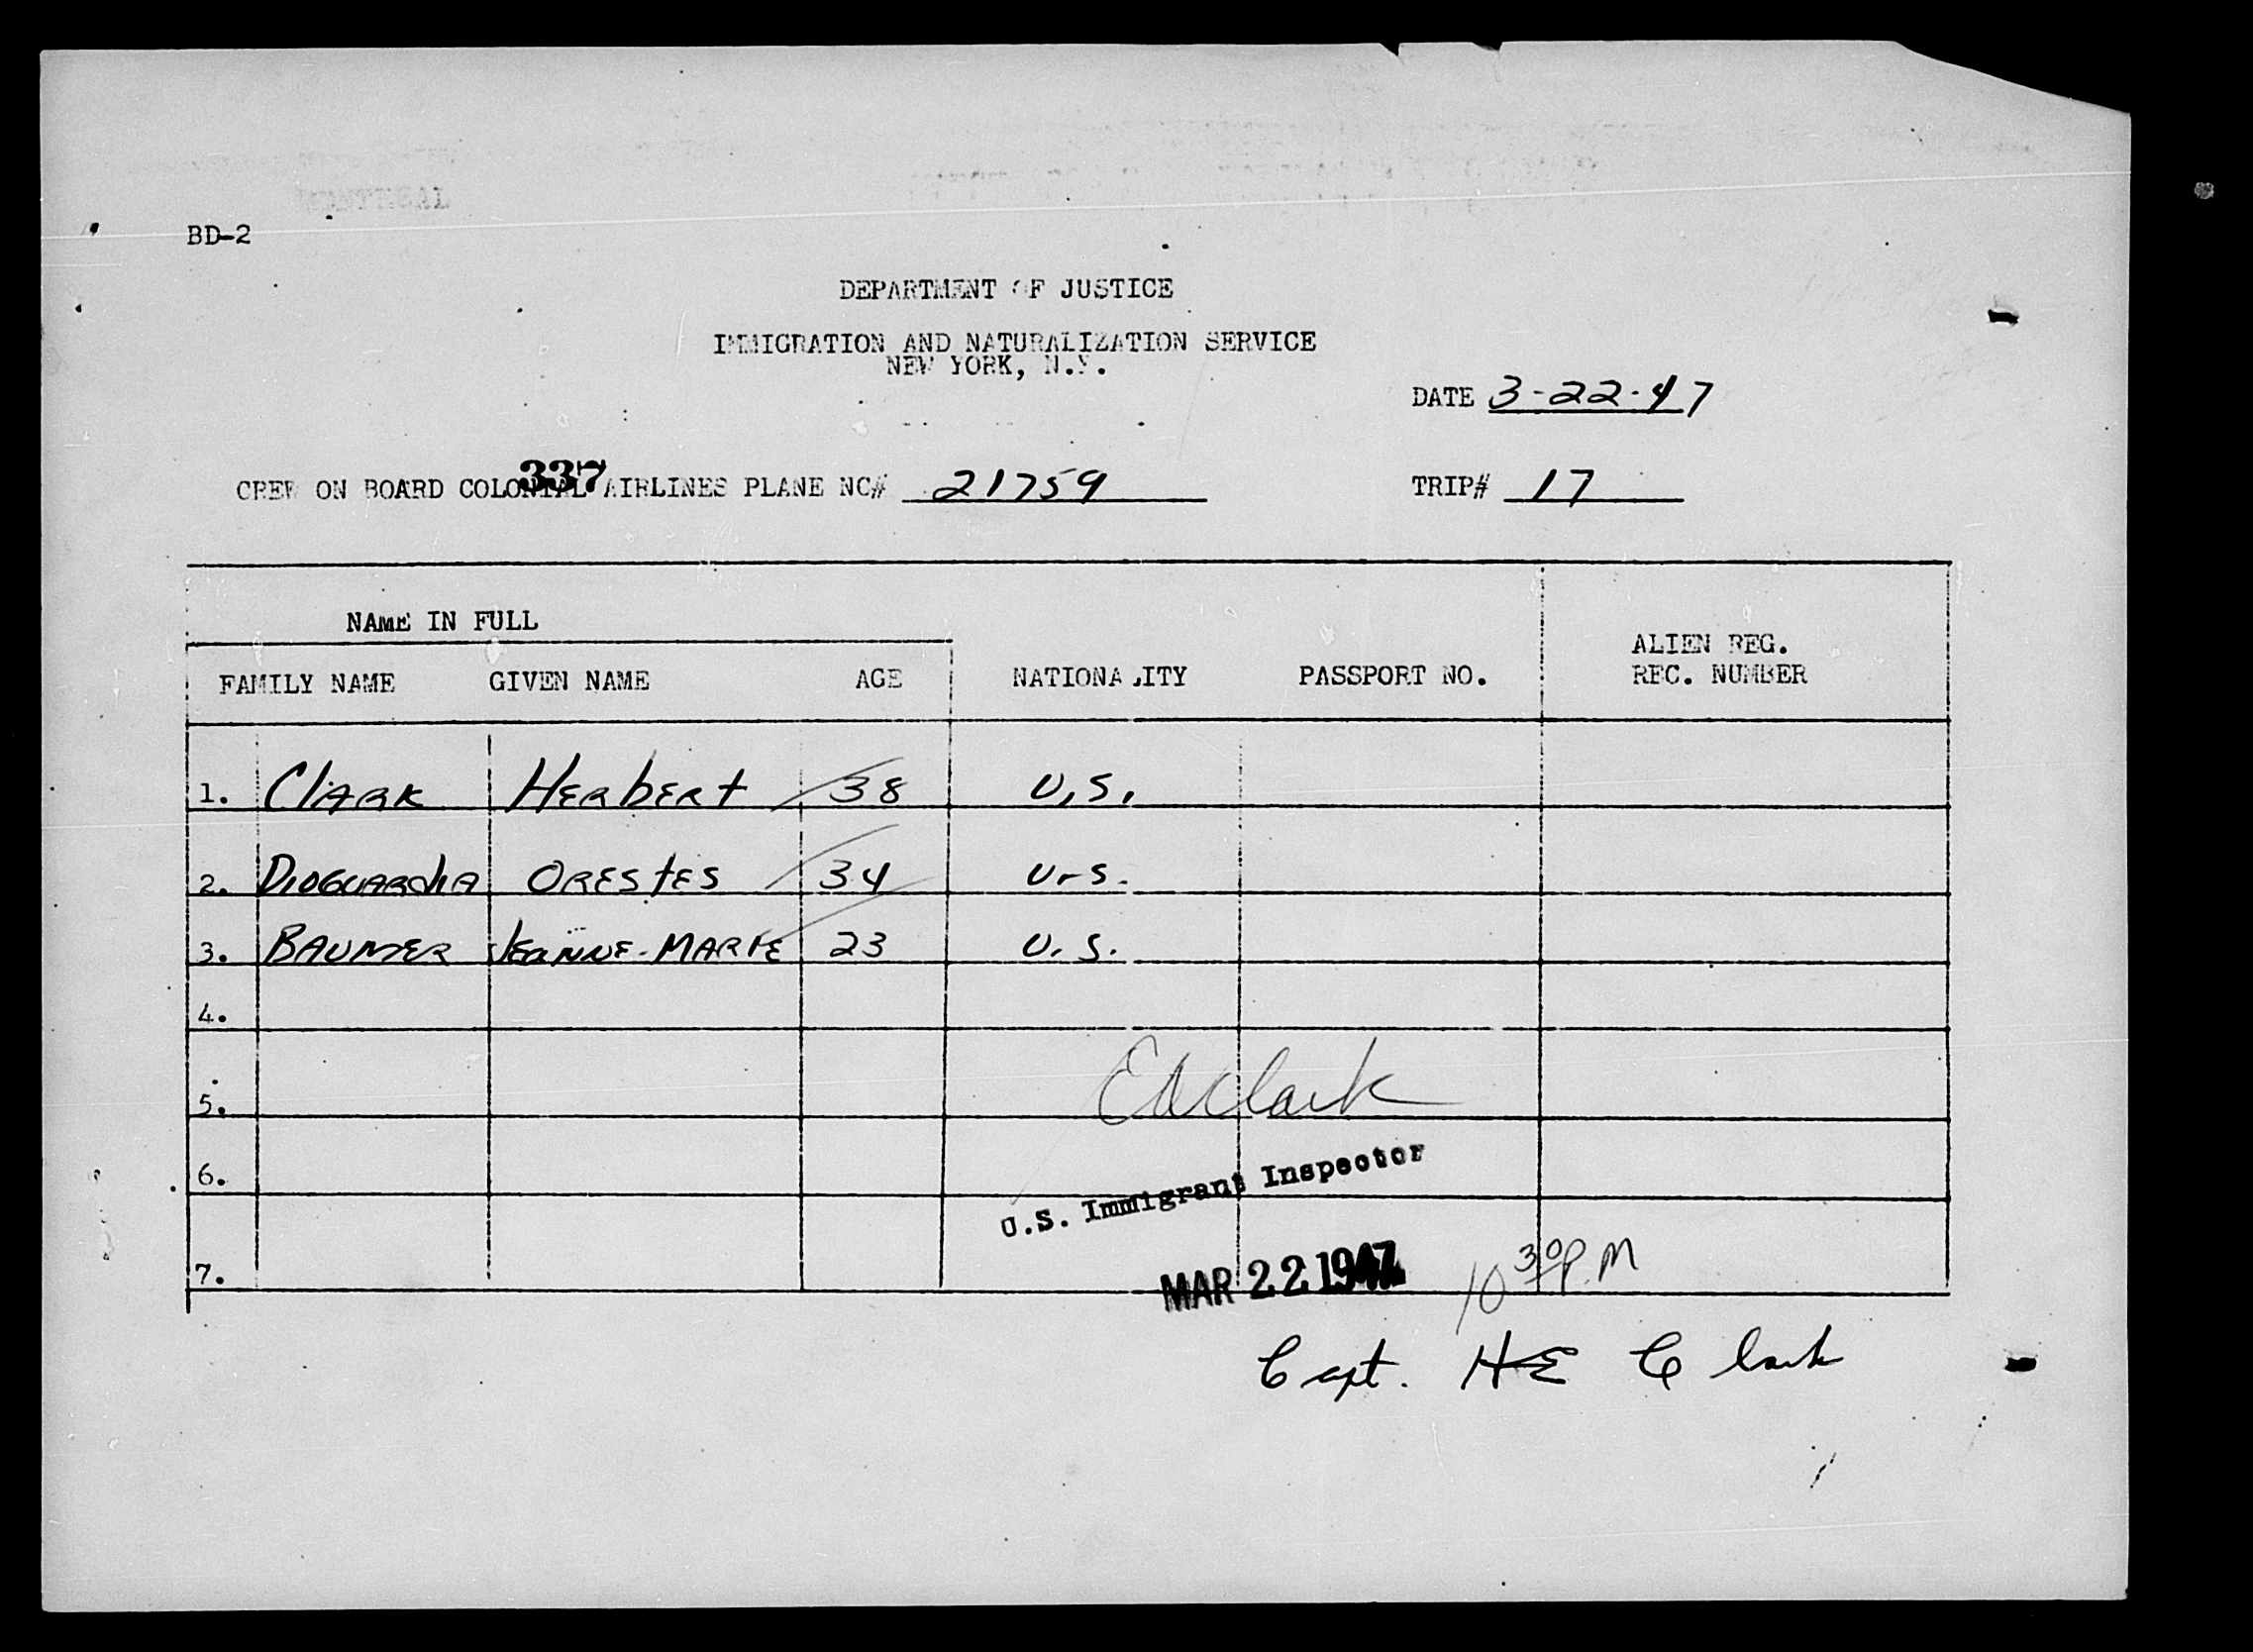 BD-2
DEPARTMENT OF JUSTICE
IMMIGRATION AND NATURALIZATION SERVICE
NEW YORK, N.Y.
DATE 3-22-47
337
CREW ON BOARD COLONIAL AIRLINES PLANE NC# 21759 TRIP# 17
NAME IN FULL
FAMILY NAME GIVEN NAME AGE NATIONALITY PASSPORT NO. ALIEN REG. REC. NUMBER
1. Clark Herbert 38 U.S.
2. Dioguardia Orestes 34 U.S.
3. Jeanne-Marie 23 U.S.
4.
5.
6.
7.
Clark
U.S. Immigrant Inspector
MAR 22 1947
10 30 P.M
Capt. HE Clark